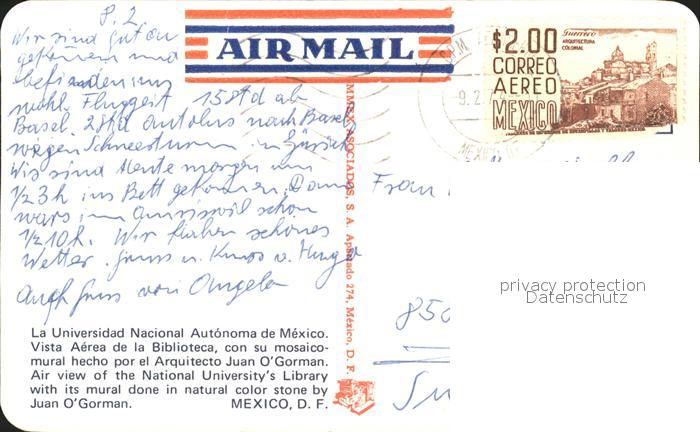 8.2
Wir sind gut an
gekommen und
befinden uns
wohl. Flugzeit 15 Std ab
Basel. 2 Std Autobus nach Basel
wegen Schneesturm in Zürich
Wir sind Heute morgen um
1/2 3 h ins Bett gekommen. Dann
wars im Amriswil schon
1/2 10 h. Wir haben schönes
Wetter. Gruss u. Kuss v. Hugo
Auch Gruss von Angela
La Universidad Nacional Autónoma de México.
Vista Aérea de la Biblioteca, con su mosaico-
mural hecho por el Arquitecto Juan O'Gorman.
Air view of the National University's Library
with its mural done in natural color stone by
Juan O'Gorman. MEXICO, D. F.
AIR MAIL
ASOCIADOS, S. A. Apartado 274, México, D. F.
$2.00
CORREO
AEREO
MEXICO
Guerrero
ARQUITECTURA
COLONIAL
9.2.
MEXICO
Frau
850
privacy protection
Datenschutz